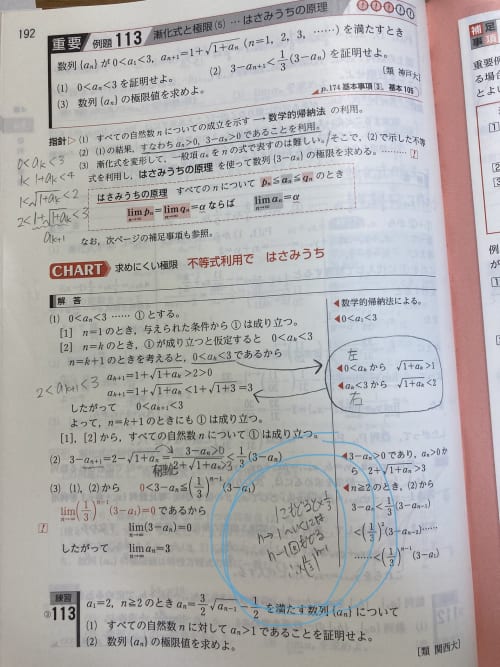 192
重要 例題 113 漸化式と極限(5) … はさみうちの原理
数列{aₙ}が0<a₁<3, aₙ₊₁=1+√(1+aₙ) (n=1, 2, 3, ……)を満たすとき
(1) 0<aₙ<3を証明せよ。 (2) 3-aₙ₊₁<1/3(3-aₙ)を証明せよ。
(3) 数列{aₙ}の極限値を求めよ。 [類 神戸大]
p.174 基本事項[3], 基本105
指針 (1) すべての自然数nについての成立を示す → 数学的帰納法 の利用。
(2) (1)の結果, すなわちaₙ>0, 3-aₙ>0であることを利用。
(3) 漸化式を変形して, 一般項aₙをnの式で表すのは難しい。そこで, (2)で示した不等
式を利用し, はさみうちの原理 を使って数列{3-aₙ}の極限を求める。……[!]
はさみうちの原理 すべてのnについて pₙ≦aₙ≦qₙのとき
lim[n→∞]pₙ=lim[n→∞]qₙ=αならば lim[n→∞]aₙ=α
なお, 次ページの補足事項も参照。
0<aₖ<3
1<1+aₖ<4
1<√(1+aₖ)<2
2<1+√(1+aₖ)<3
aₖ₊₁
CHART 求めにくい極限 不等式利用で はさみうち
解答
(1) 0<aₙ<3 …… ① とする。
[1] n=1のとき, 与えられた条件から①は成り立つ。
[2] n=kのとき, ①が成り立つと仮定すると 0<aₖ<3
n=k+1のときを考えると, 0<aₖ<3であるから
aₖ₊₁=1+√(1+aₖ)>2>0
aₖ₊₁=1+√(1+aₖ)<1+√(1+3)=3
2<aₖ₊₁<3
したがって 0<aₖ₊₁<3
よって, n=k+1のときにも①は成り立つ。
[1], [2]から, すべての自然数nについて①は成り立つ。
◀数学的帰納法による。
◀0<a₁<3
左
◀0<aₖから √(1+aₖ)>1
◀aₖ<3から √(1+aₖ)<2
右
(2) 3-aₙ₊₁=2-√(1+aₙ)=(3-aₙ)/(2+√(1+aₙ))<1/3(3-aₙ)
◀3-aₙ>0であり, aₙ>0か
ら 2+√(1+aₙ)>3
(3) (1), (2)から 0<3-aₙ≦(1/3)ⁿ⁻¹(3-a₁)
[!] lim[n→∞](1/3)ⁿ⁻¹(3-a₁)=0であるから
lim[n→∞](3-aₙ)=0
したがって lim[n→∞]aₙ=3
◀n≧2のとき, (2)から
3-aₙ<1/3(3-aₙ₋₁)
<(1/3)²(3-aₙ₋₂)……
……<(1/3)ⁿ⁻¹(3-a₁)
練習
③113 a₁=2, n≧2のときaₙ=3/2√aₙ₋₁-1/2を満たす数列{aₙ}について
(1) すべての自然数nに対してaₙ>1であることを証明せよ。
(2) 数列{aₙ}の極限値を求めよ。 [類 関西大]